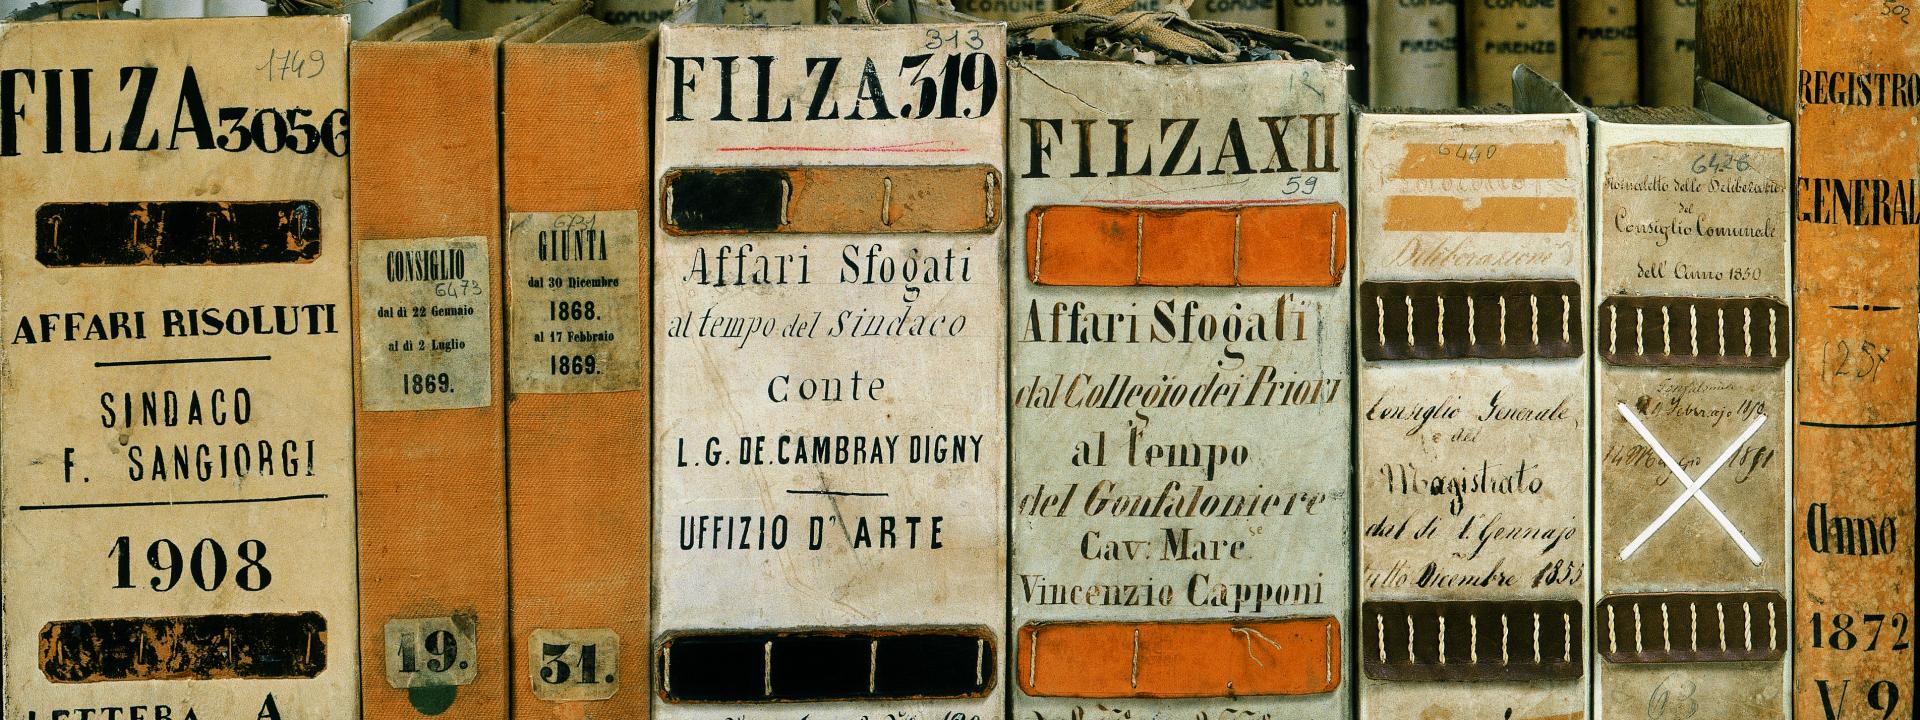 1749
FILZA 3056
AFFARI RISOLUTI
SINDACO
F. SANGIORGI
1908
LETTERA A
CONSIGLIO
6473
dal dì 22 Gennaio
al dì 2 Luglio
1869.
19.
GIUNTA
dal 30 Dicembre
1868.
al 17 Febbraio
1869.
31.
313
FILZA 319
Affari Sfogati
al tempo del Sindaco
Conte
L.G. DE. CAMBRAY DIGNY
UFFIZIO D'ARTE
12
FILZA XII
59
Affari Sfogati
dal Collegio dei Priori
al Tempo
del Gonfaloniere
Cav: Marc.se
Vincenzio Capponi
6440
Deliberazioni
Consiglio Generale
e del
Magistrato
dal dì 1.° Gennajo
tutto Dicembre 1855
6426
delle Deliberazioni
del
Consiglio Comunale
dell'Anno 1850
63
COMUNE
COMUNE
COMUNE
COMUNE
DI
FIRENZE
COMUNE
DI
FIRENZE
502
REGISTRO
GENERAL
1257
Anno
1872
V. 2